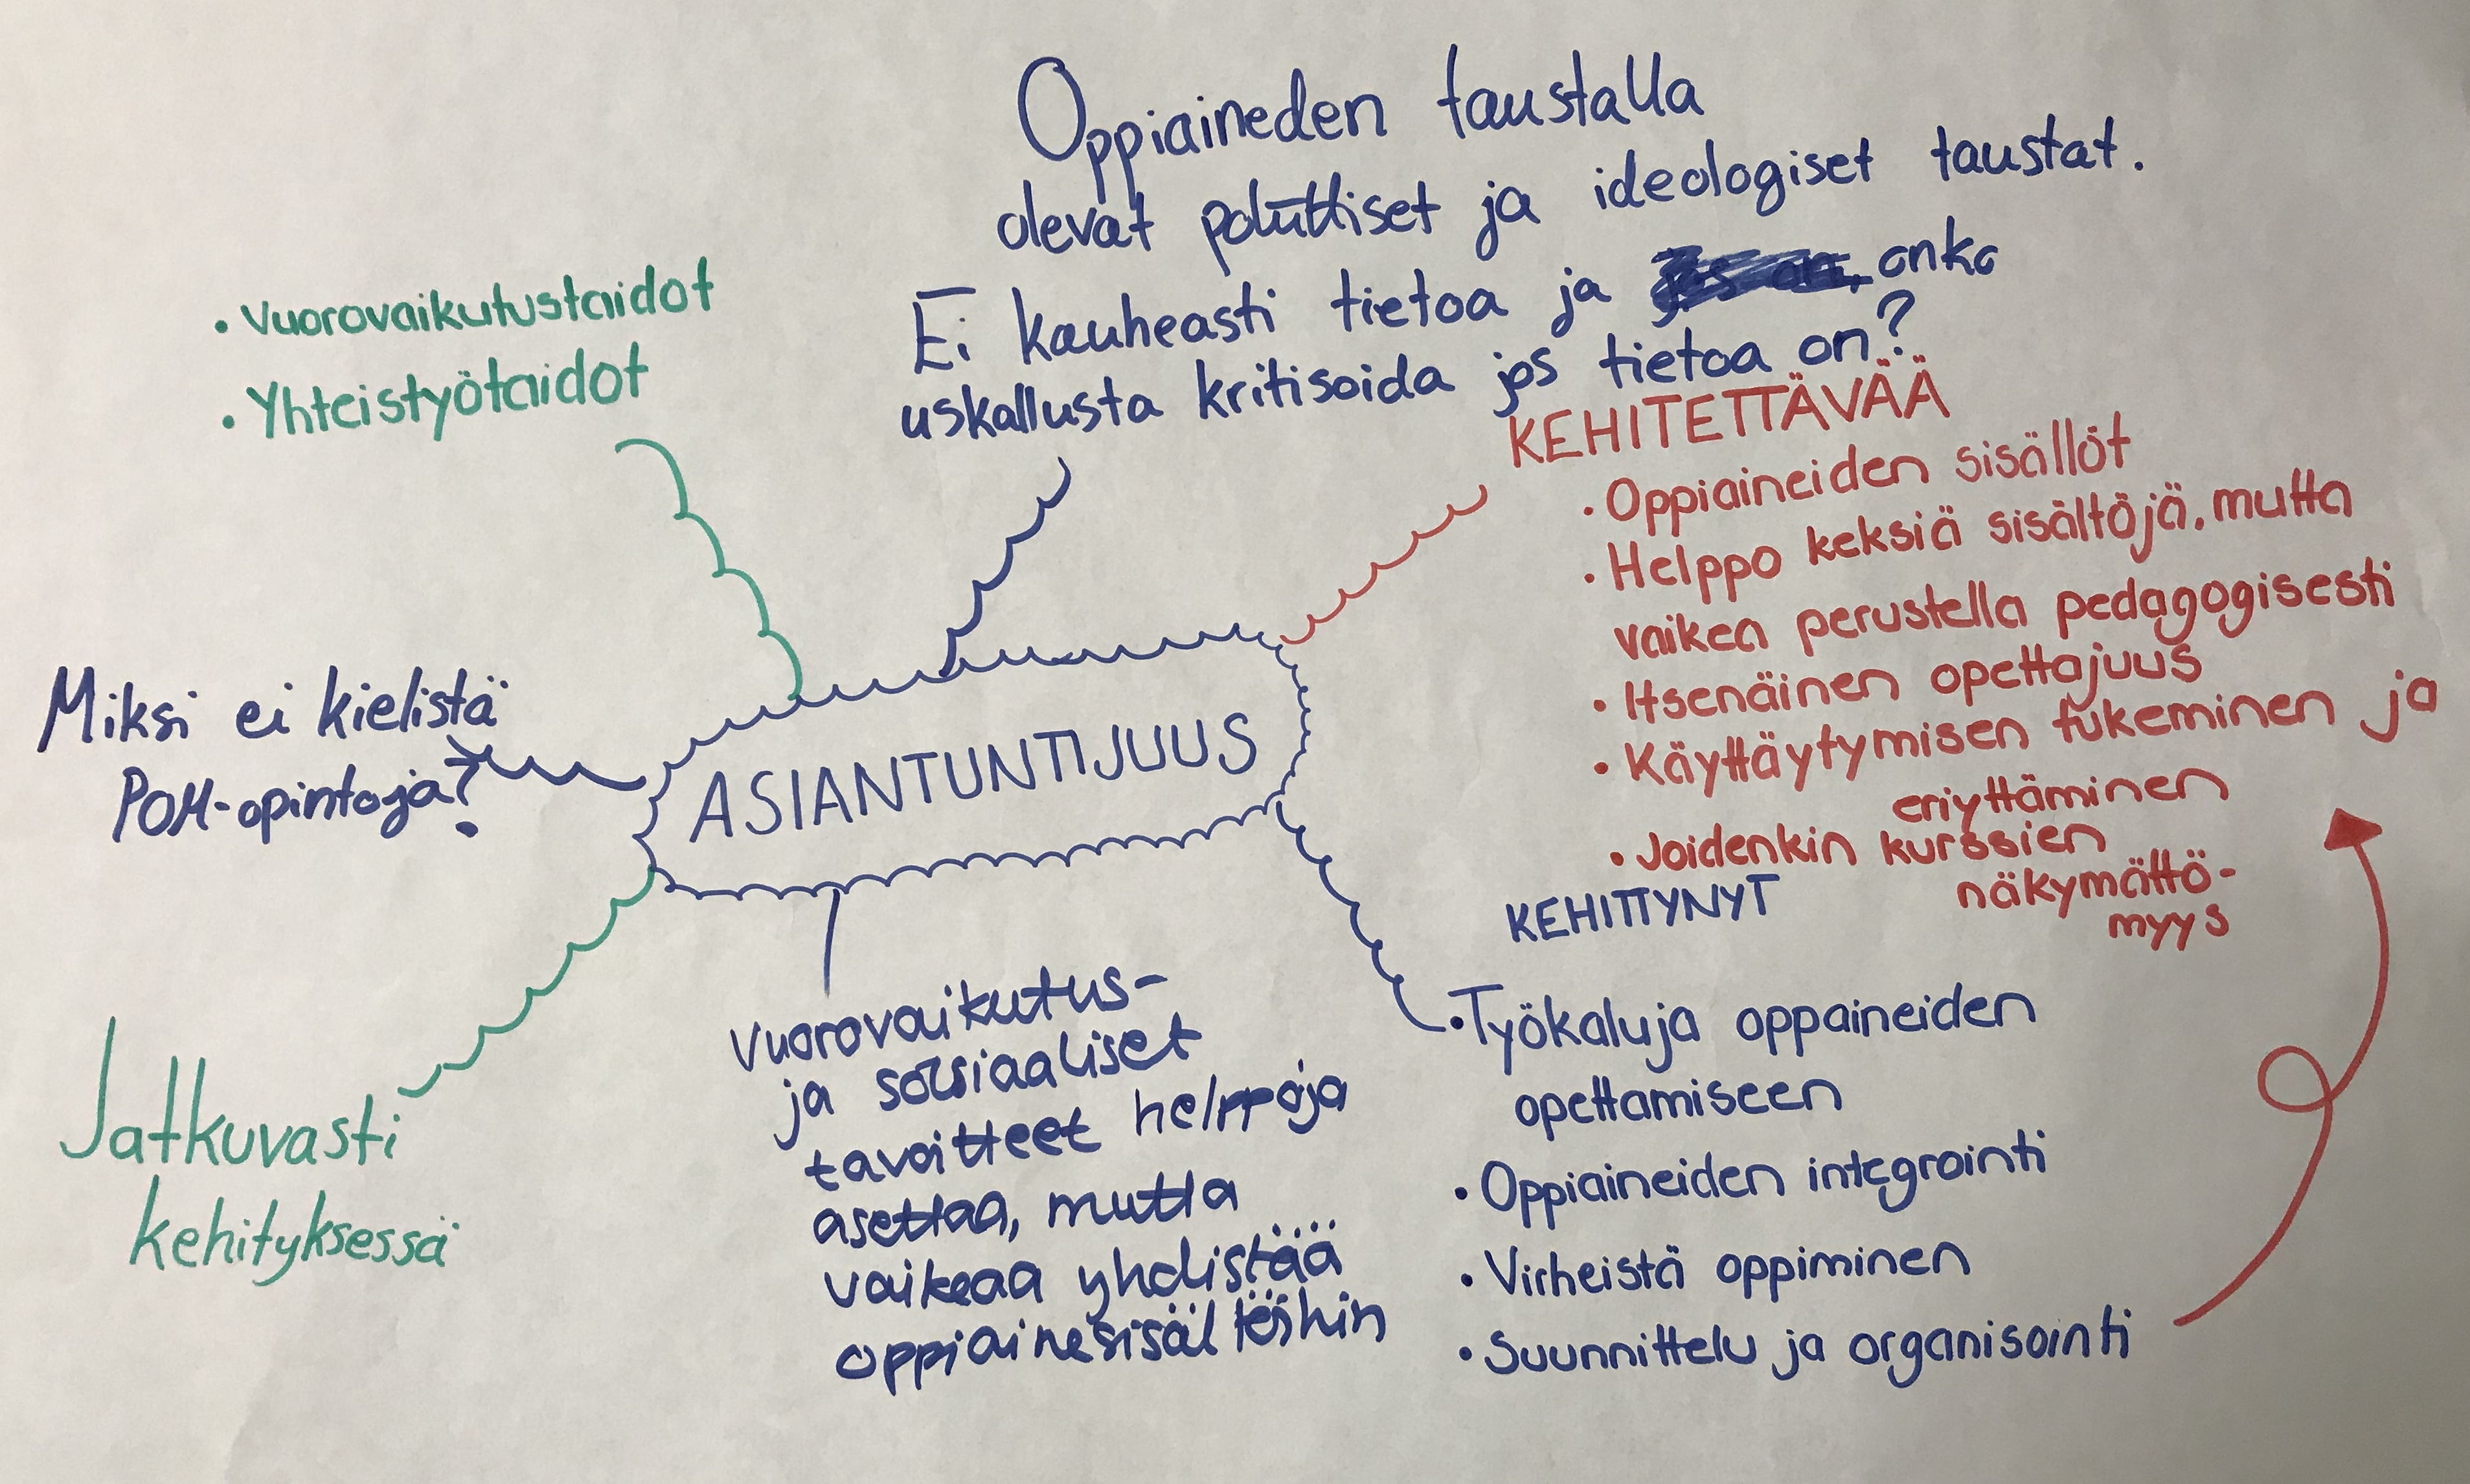 Oppiaineden taustalla
olevat poliittiset ja ideologiset taustat.
Ei kauheasti tietoa ja onko
uskallusta kritisoida jos tietoa on?
• Vuorovaikutustaidot
• Yhteistyötaidot
KEHITETTÄVÄÄ
• Oppiaineiden sisällöt
• Helppo keksiä sisältöjä, mutta
vaikea perustella pedagogisesti
• Itsenäinen opettajuus
• Käyttäytymisen tukeminen ja
eriyttäminen
• Joidenkin kurssien
näkymättö-
myys
Miksi ei kielistä
POM-opintoja?
ASIANTUNTIJUUS
KEHITTYNYT
• Työkaluja oppaineiden
opettamiseen
• Oppiaineiden integrointi
• Virheistä oppiminen
• Suunnittelu ja organisointi
Vuorovaikutus-
ja sosiaaliset
tavoitteet helppoja
asettaa, mutta
vaikeaa yhdistää
oppiainesisältöihin
Jatkuvasti
kehityksessä